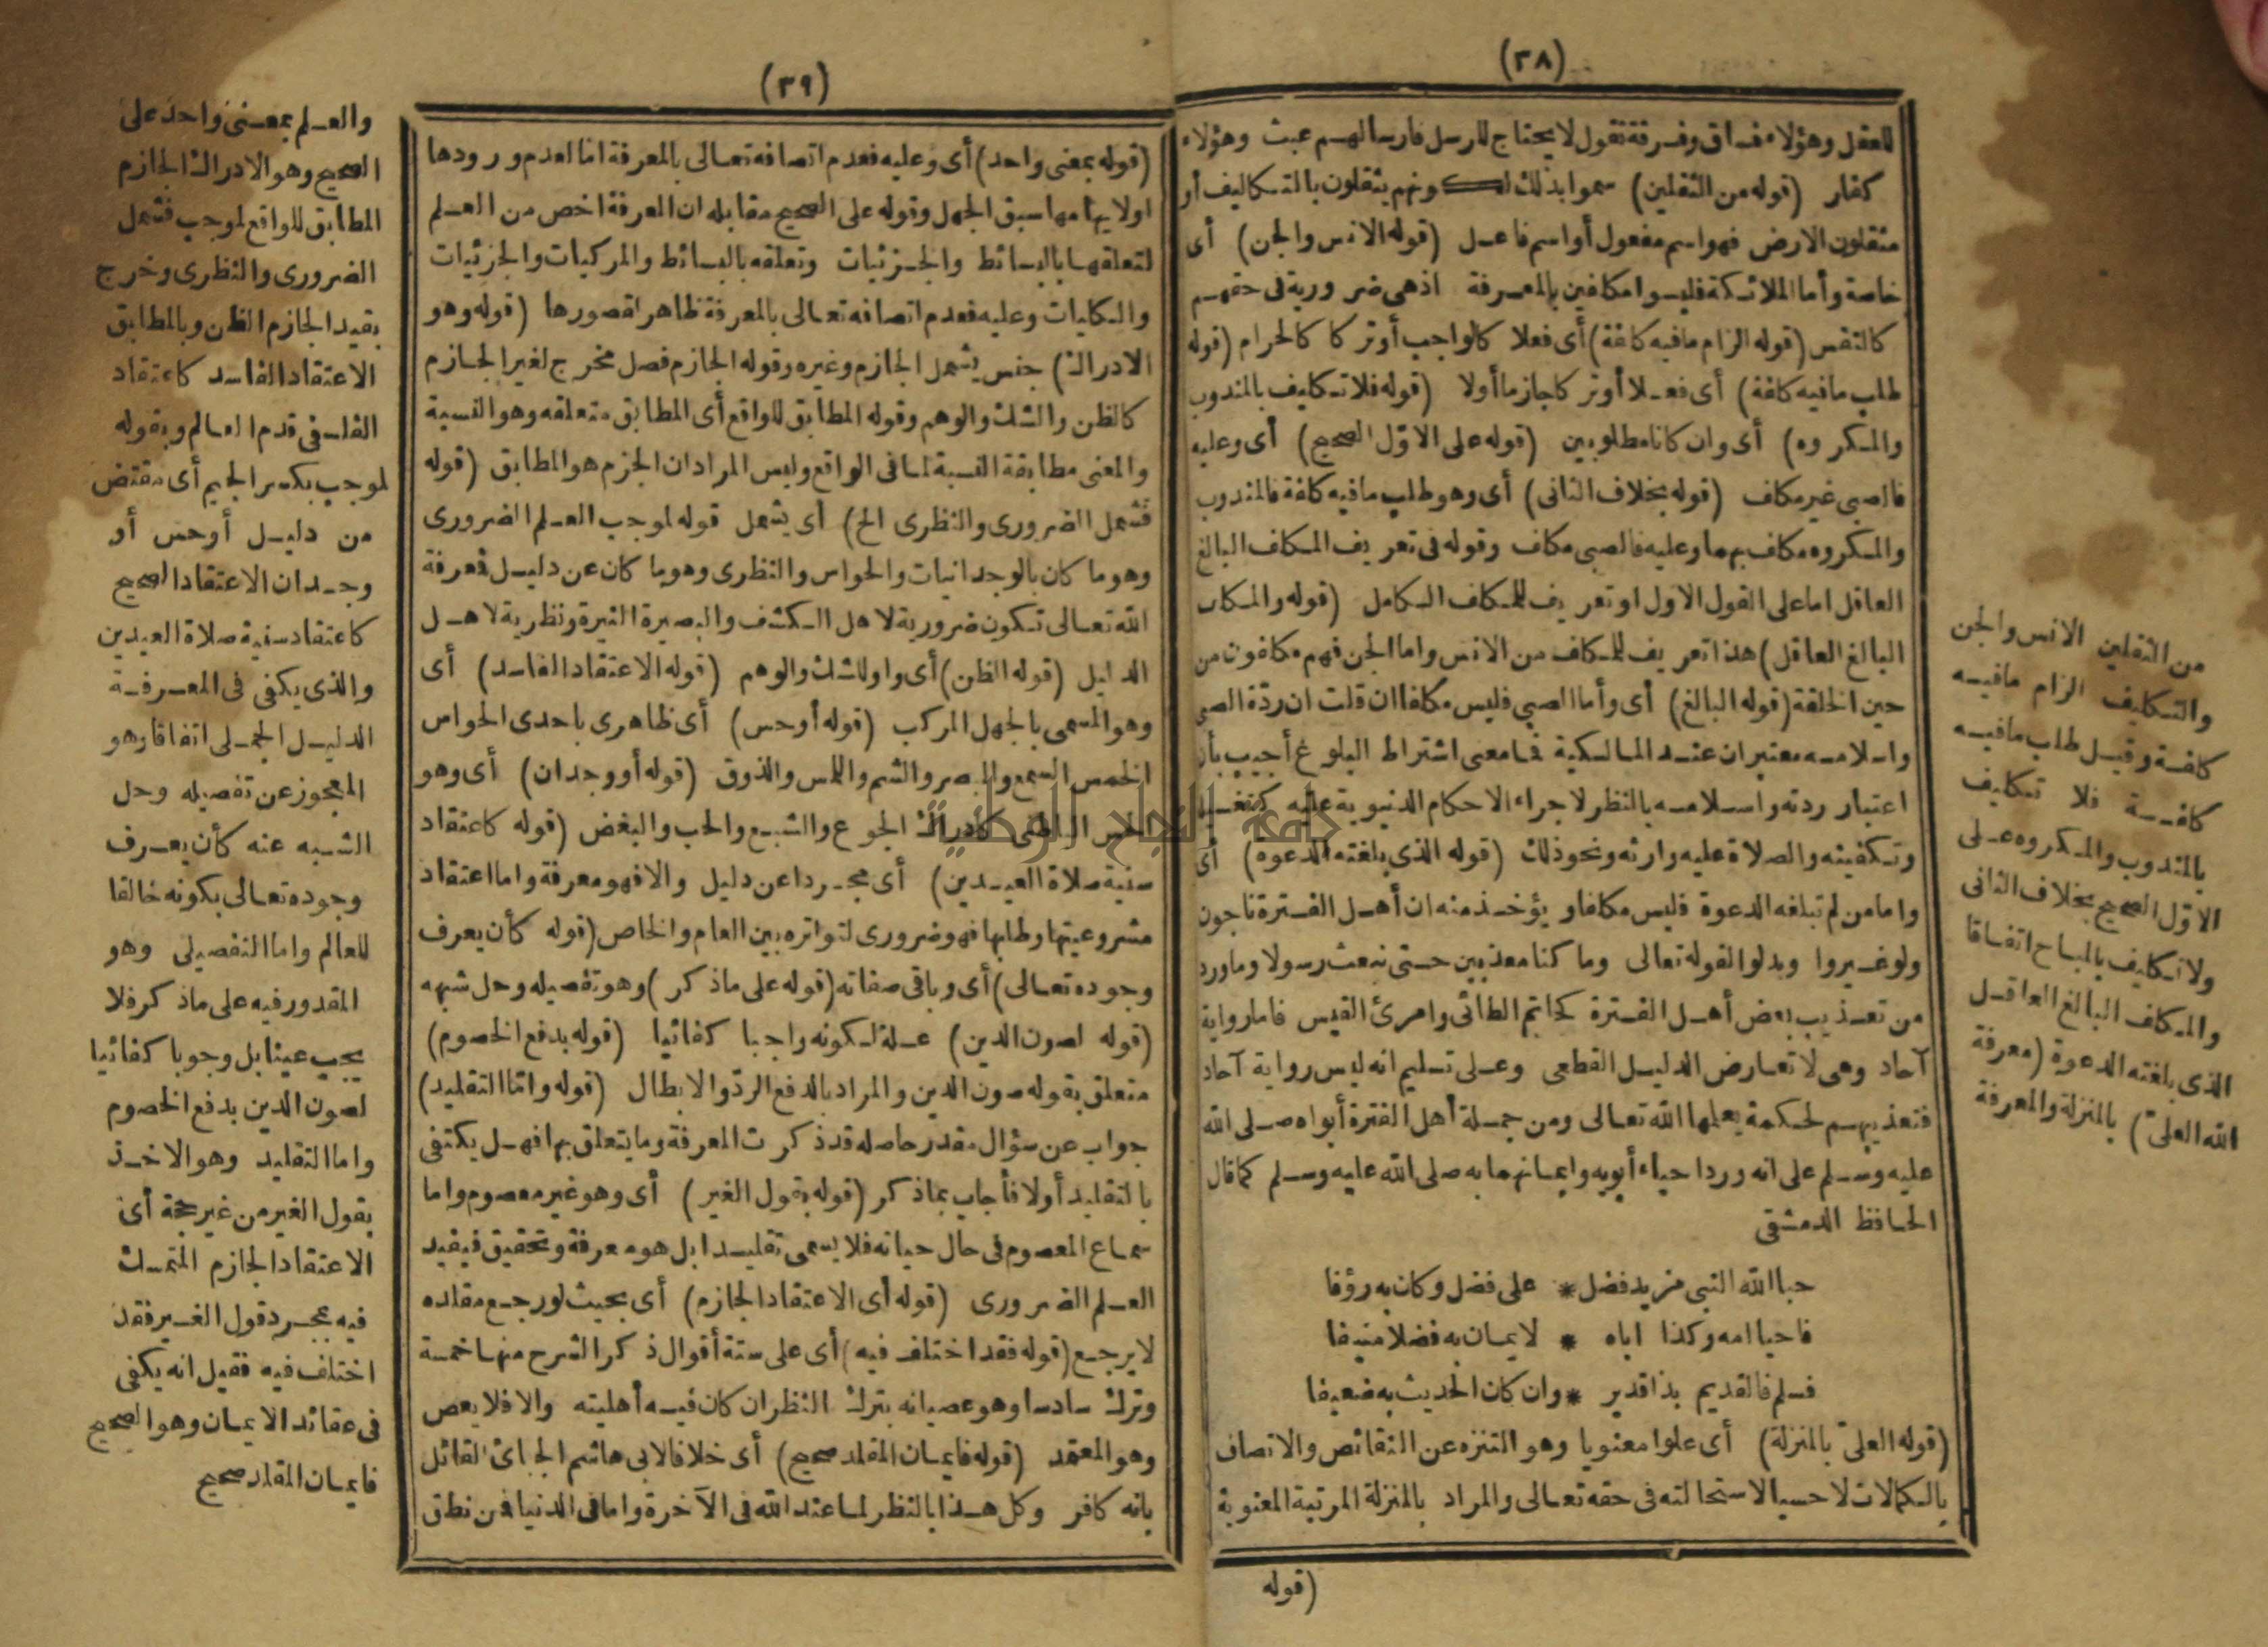 (٣٨)
للعقل وهؤلاء فساق وفرقة تقول لا يحتاج للرسل فارسالهم عبث وهؤلاء
كفار (قوله من الثقلين) سموا بذلك لكونهم يثقلون بالتكاليف أو
مثقلون الارض فهو اسم مفعول أو اسم فاعل (قوله الانس والجن) أى
خاصة وأما الملائكة فليسوا مكلفين بالمعرفة اذهى ضرورية فى حقهم
كالنفس (قوله الزام مافيه كلفة) أى فعلا كالواجب أو تركا كالحرام (قوله
طلب مافيه كلفة) أى فعلا أو تركا جازما أولا (قوله فلا تكليف بالمندوب
والمكروه) أى وان كانا مطلوبين (قوله على الاوّل الصحيح) أى وعليه
فالصبى غير مكلف (قوله بخلاف الثانى) أى وهو طلب مافيه كلفة فالمندوب
والمكروه مكلف بهما وعليه فالصبى مكلف وقوله فى تعريف المكلف البالغ
العاقل اما على القول الاول او تعريف للمكلف الكامل (قوله والمكلف
البالغ العاقل) هذا تعريف للمكلف من الانس واما الجن فهم مكلفون من
حين الخلقة (قوله البالغ) أى وأما الصبى فليس مكلفا ان قلت ان ردّة الصبى
واسلامه معتبران عند المالكية فما معنى اشتراط البلوغ أجيب بأن
اعتبار ردته واسلامه بالنظر لاجراء الاحكام الدنيوية عليه كتغسيله
وتكفينه والصلاة عليه وارثه ونحو ذلك (قوله الذى بلغته الدعوة) أى
واما من لم تبلغه الدعوة فليس مكلفا ويؤخذ منه ان أهل الفترة ناجون
ولو غيروا وبدلوا لقوله تعالى وما كنا معذبين حتى نبعث رسولا وما ورد
من تعذيب بعض أهل الفترة كحاتم الطائى وامرئ القيس فاما رواية
آحاد وهى لا تعارض الدليل القطعى وعلى تسليم انه ليس رواية آحاد
فتعذيبهم لحكمة يعلمها الله تعالى ومن جملة أهل الفترة أبواه صلى الله
عليه وسلم على انه ورد احياء أبويه وايمانهما به صلى الله عليه وسلم كما قال
الحافظ الدمشقى
حبا الله النبى مزيد فضل * على فضل وكان به رؤفا
فاحيا امه وكذا اباه * لايمان به فضلا منيفا
فسلم فالقديم بذا قدير * وان كان الحديث به ضعيفا
(قوله العلىّ بالمنزلة) أى علوا معنويا وهو التنزه عن النقائص والاتصاف
بالكمالات لا حسيا لاستحالته فى حقه تعالى والمراد بالمنزلة المرتبة المعنوية
(قوله
من الثقلين الانس والجن
والتكليف الزام مافيه
كلفة وقيل طلب مافيه
كلفة فلا تكليف
بالمندوب والمكروه على
الاوّل الصحيح بخلاف الثانى
ولا تكليف بالمباح اتفاقا
والمكلف البالغ العاقل
الذى بلغته الدعوة (معرفة
الله العلىّ) بالمنزلة والمعرفة
(٣٩)
(قوله بمعنى واحد) أى وعليه فعدم اتصافه تعالى بالمعرفة اما لعدم ورودها
اولايهامها سبق الجهل وقوله على الصحيح مقابله ان المعرفة اخص من العلم
لتعلقها بالبسائط والجزئيات وتعلقه بالبسائط والمركبات والجزئيات
والكليات وعليه فعدم اتصافه تعالى بالمعرفة ظاهر لقصورها (قوله وهو
الادراك) جنس يشمل الجازم وغيره وقوله الجازم فصل مخرج لغير الجازم
كالظن والشك والوهم وقوله المطابق للواقع أى المطابق متعلقه وهو النسبة
والمعنى مطابقة النسبة لما فى الواقع وليس المراد ان الجزم هو المطابق (قوله
فشمل الضرورى والنظرى الخ) أى يشمل قوله لموجب العلم الضرورى
وهو ما كان بالوجدانيات والحواس والنظرى وهو ما كان عن دليل فمعرفة
الله تعالى تكون ضرورية لاهل الكشف والبصيرة النيرة ونظرية لاهل
الدليل (قوله الظن) أى واولى الشك والوهم (قوله الاعتقاد الفاسد) أى
وهو المسمى بالجهل المركب (قوله أوحس) أى ظاهرى باحدى الحواس
الخمس السمع والبصر والشم واللمس والذوق (قوله أو وجدان) أى وهو
الحس الباطنى كادراك الجوع والشبع والحب والبغض (قوله كاعتقاد
سنية صلاة العيدين) أى مجردا عن دليل والا فهو معرفة واما اعتقاد
مشروعيتها وطلبها فهو ضرورى لتواتره بين العام والخاص (قوله كأن يعرف
وجوده تعالى) أى وباقى صفاته (قوله على ماذكر) وهو تفصيله وحل شبهه
(قوله لصون الدين) علة لكونه واجبا كفائيا (قوله بدفع الخصوم)
متعلق بقوله صون الدين والمراد بالدفع الردّ والابطال (قوله واتما التقليد)
جواب عن سؤال مقدر حاصله قد ذكرت المعرفة وما يتعلق بها فهل يكتفى
بالتقليد أولا فأجاب بماذكر (قوله بقول الغير) أى وهو غير معصوم واما
سماع المعصوم فى حال حياته فلا يسمى تقليدا بل هو معرفة وتحقيق فيفيد
العلم الضرورى (قوله أى الاعتقاد الجازم) أى بحيث لو رجع مقلده
لا يرجع (قوله فقد اختلف فيه) أى على ستة أقوال ذكر الشرح منها خمسة
وترك سادسا وهو عصيانه بترك النظر ان كان فيه أهليته والا فلا يعص
وهو المعتمد (قوله فايمان المقلد صحيح) أى خلافا لابى هاشم الجبائى القائل
بانه كافر وكل هذا بالنظر لما عند الله فى الآخرة واما فى الدنيا فمن نطق
والعلم بمعنى واحد على
الصحيح وهو الادراك الجازم
المطابق للواقع لموجب فشمل
الضرورى والنظرى وخرج
بقيد الجازم الظن وبالمطابق
الاعتقاد الفاسد كاعتقاد
الفلسفى قدم العالم وبقوله
لموجب بكسر الجيم أى مقتض
من دليل أو حس أو
وجدان الاعتقاد الصحيح
كاعتقاد سنية صلاة العيدين
والذى يكفى فى المعرفة
الدليل الجملى اتفاقا وهو
المعجوز عن تفصيله وحل
الشبه عنه كأن يعرف
وجوده تعالى بكونه خالقا
للعالم واما التفصيلى وهو
المقدور فيه على ماذكر فلا
يجب عينا بل وجوبا كفائيا
لصون الدين بدفع الخصوم
واما التقليد وهو الاخذ
بقول الغير من غير حجة أى
الاعتقاد الجازم المتمسك
فيه بمجرد قول الغير فقد
اختلف فيه فقيل انه يكفى
فى عقائد الايمان وهو الصحيح
فايمان المقلد صحيح
جامعة النجاح الوطنية